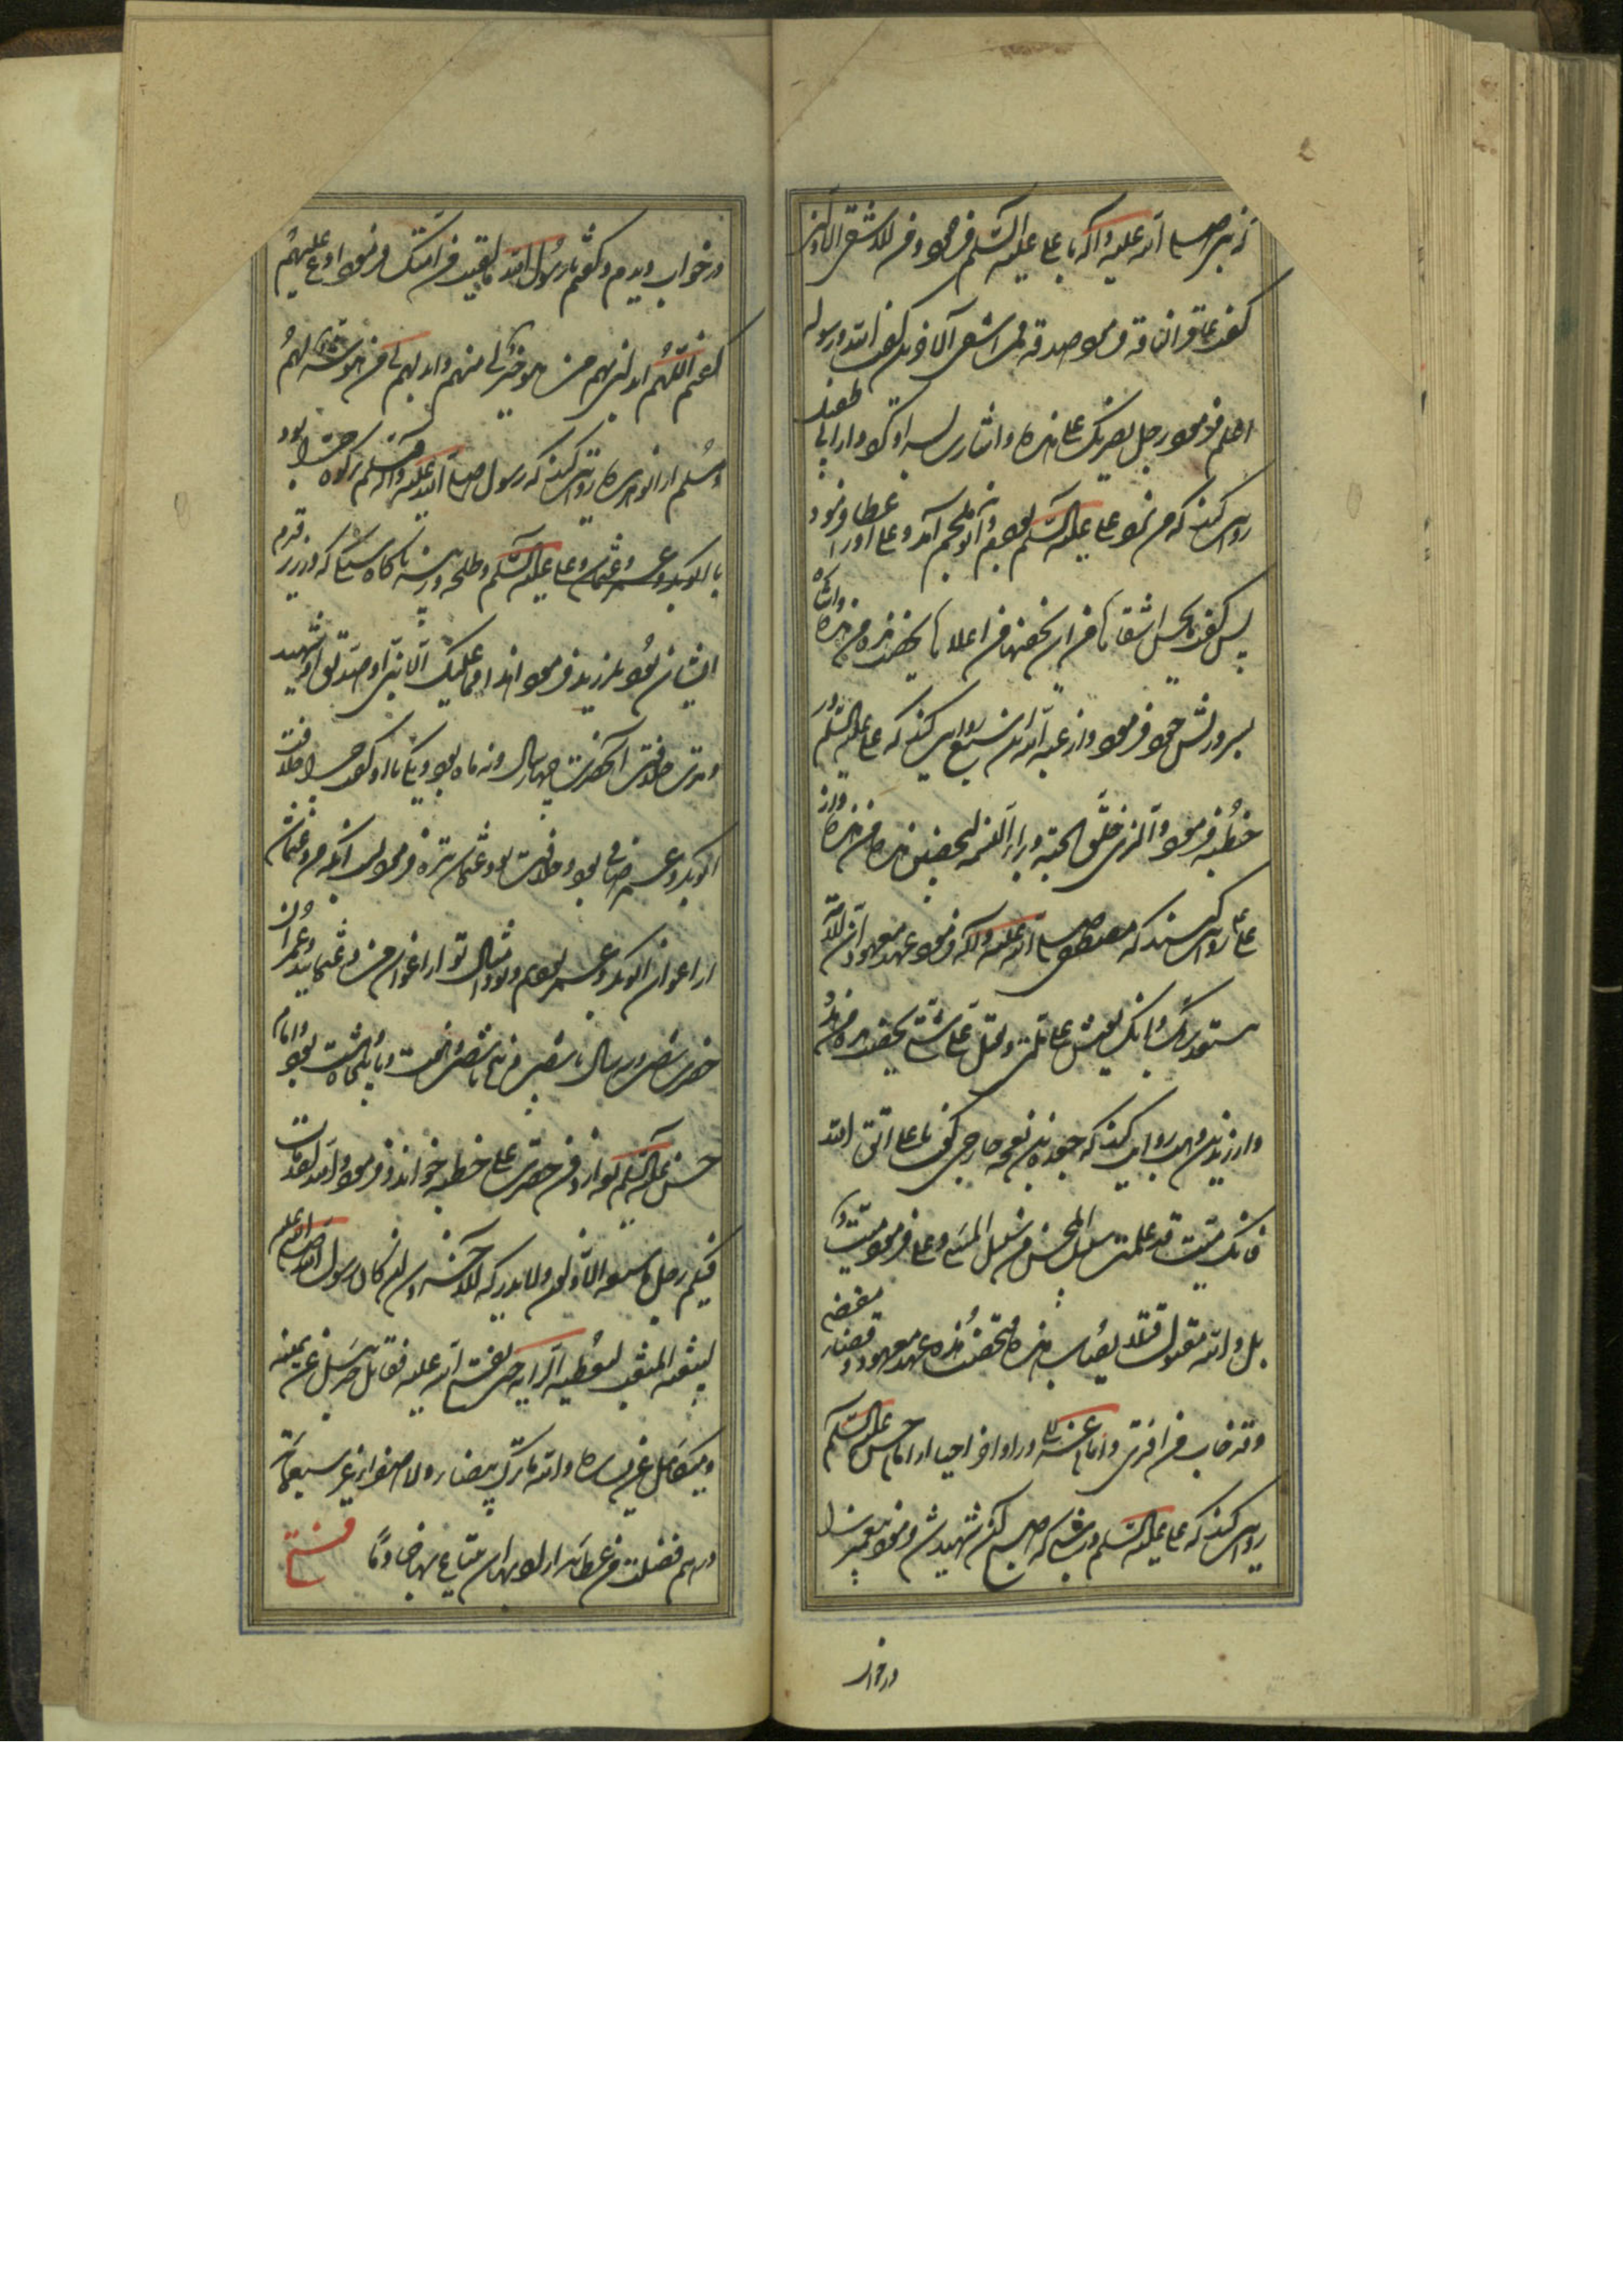 که پیغمبر صلی الله علیه وآله با علی علیه السلام فرمود من اشقی الاولین
گفت عاقر الناقة فرمود صدقت فمن اشقی الآخرین گفت الله ورسوله
اعلم فرمود رجل یضربک علی هذه واشارت بسر او کرد و از ابی طفیل
روایت کنند که من نزد علی علیه السلام بودم وابن ملجم آمد وعلی او را عطا فرمود
پس گفت ما یحبس اشقاها من ان یخضبها من اعلاها یخضب هذه من هذه واشاره
بسر وریش خود فرمود واز عبد الله بن سبع روایت کنند که علی علیه السلام در
خطبه فرمود والذی فلق الحبة وبرأ النسمة لتخضبن هذه من هذه واز
علی روایت کنند که مصطفی صلی الله علیه وآله فرمود عهد معهود ان الامة
ستغدر بک وانک تعیش علی ملتی وتقتل علی سنتی یخضب هذه من هذه
واز زید بن وهب روایت کنند که جعدة بن نعجه خارجی گفت یا علی اتق الله
فانک میت قد علمت سبیل المحسن من سبیل المسیء وعلی فرمود میت
بل والله مقتول قتلا یصاب هذه فتخضب هذه عهد معهود وقضاء مقضی
وقد خاب من افتری واما در اواخر احیاء از امام حسن علیه السلام
روایت کنند که علی علیه السلام در شبی که صبح آن شهید شد فرمود پیغمبر را
در خواب
در خواب دیدم وگفتم یا رسول الله ما لقیت من امتک فرمود ادع علیهم
گفتم اللهم ابدلنی بهم من هو خیر لی منهم وابدلهم بی من هو شر لهم
ومسلم از ابو هریره روایت کند که رسول صلی الله علیه وآله وسلم بر کوه حرا بود
با ابو بکر وعمر وعثمان وعلی علیه السلام وطلحه وزبیر ناگاه سنگی که در زیر قدم
ایشان بود بلرزید فرمود اهدأ فما علیک الا نبی او صدیق او شهید
ومدت خلافت آنحضرت چهار سال ونه ماه بود ویکی با او گفت چرا خلافت
ابو بکر وعمر صافی بود وخلافت تو وعثمان تیره فرمود سبب آنکه من وعثمان
از اعوان ابو بکر وعمر بودیم وتو وامثال تو از اعوان من وعثمانید وعمر آن
حضرت شصت وسه سال یا شصت وپنج یا شصت وهفت ویا پنجاه وهشت بود وامام
حسن علیه السلام بعد از دفن حضرت علی خطبه خواند وفرمود ولقد مات
فیکم رجل ما سبقه الاولون ولا یدرکه الآخرون کان رسول الله صلی الله علیه
لیبعثه المبعث لیعطیه الرایة حتی یفتح الله علیه فقاتل جبرئیل عن یمینه
ومیکائیل عن یساره والله ما ترک بیضاء ولا صفراء غیر سبعمائة
درهم فضلت من عطائه اراد بها ان یبتاع بها خادما فتح